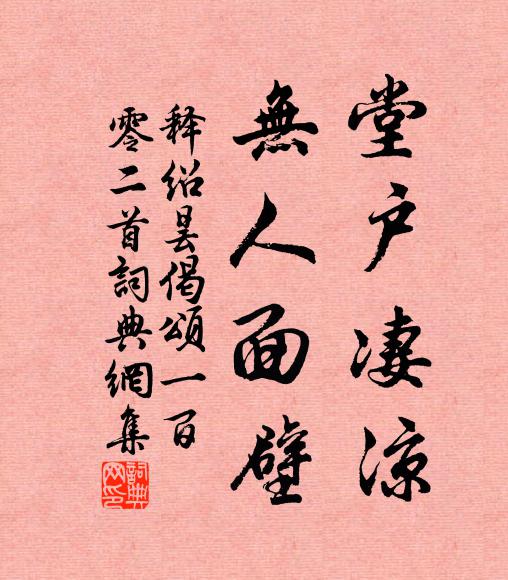 堂戶淒涼
無人面壁
釋紹曇偈頌一百
零二首詞典網集
詞典网印